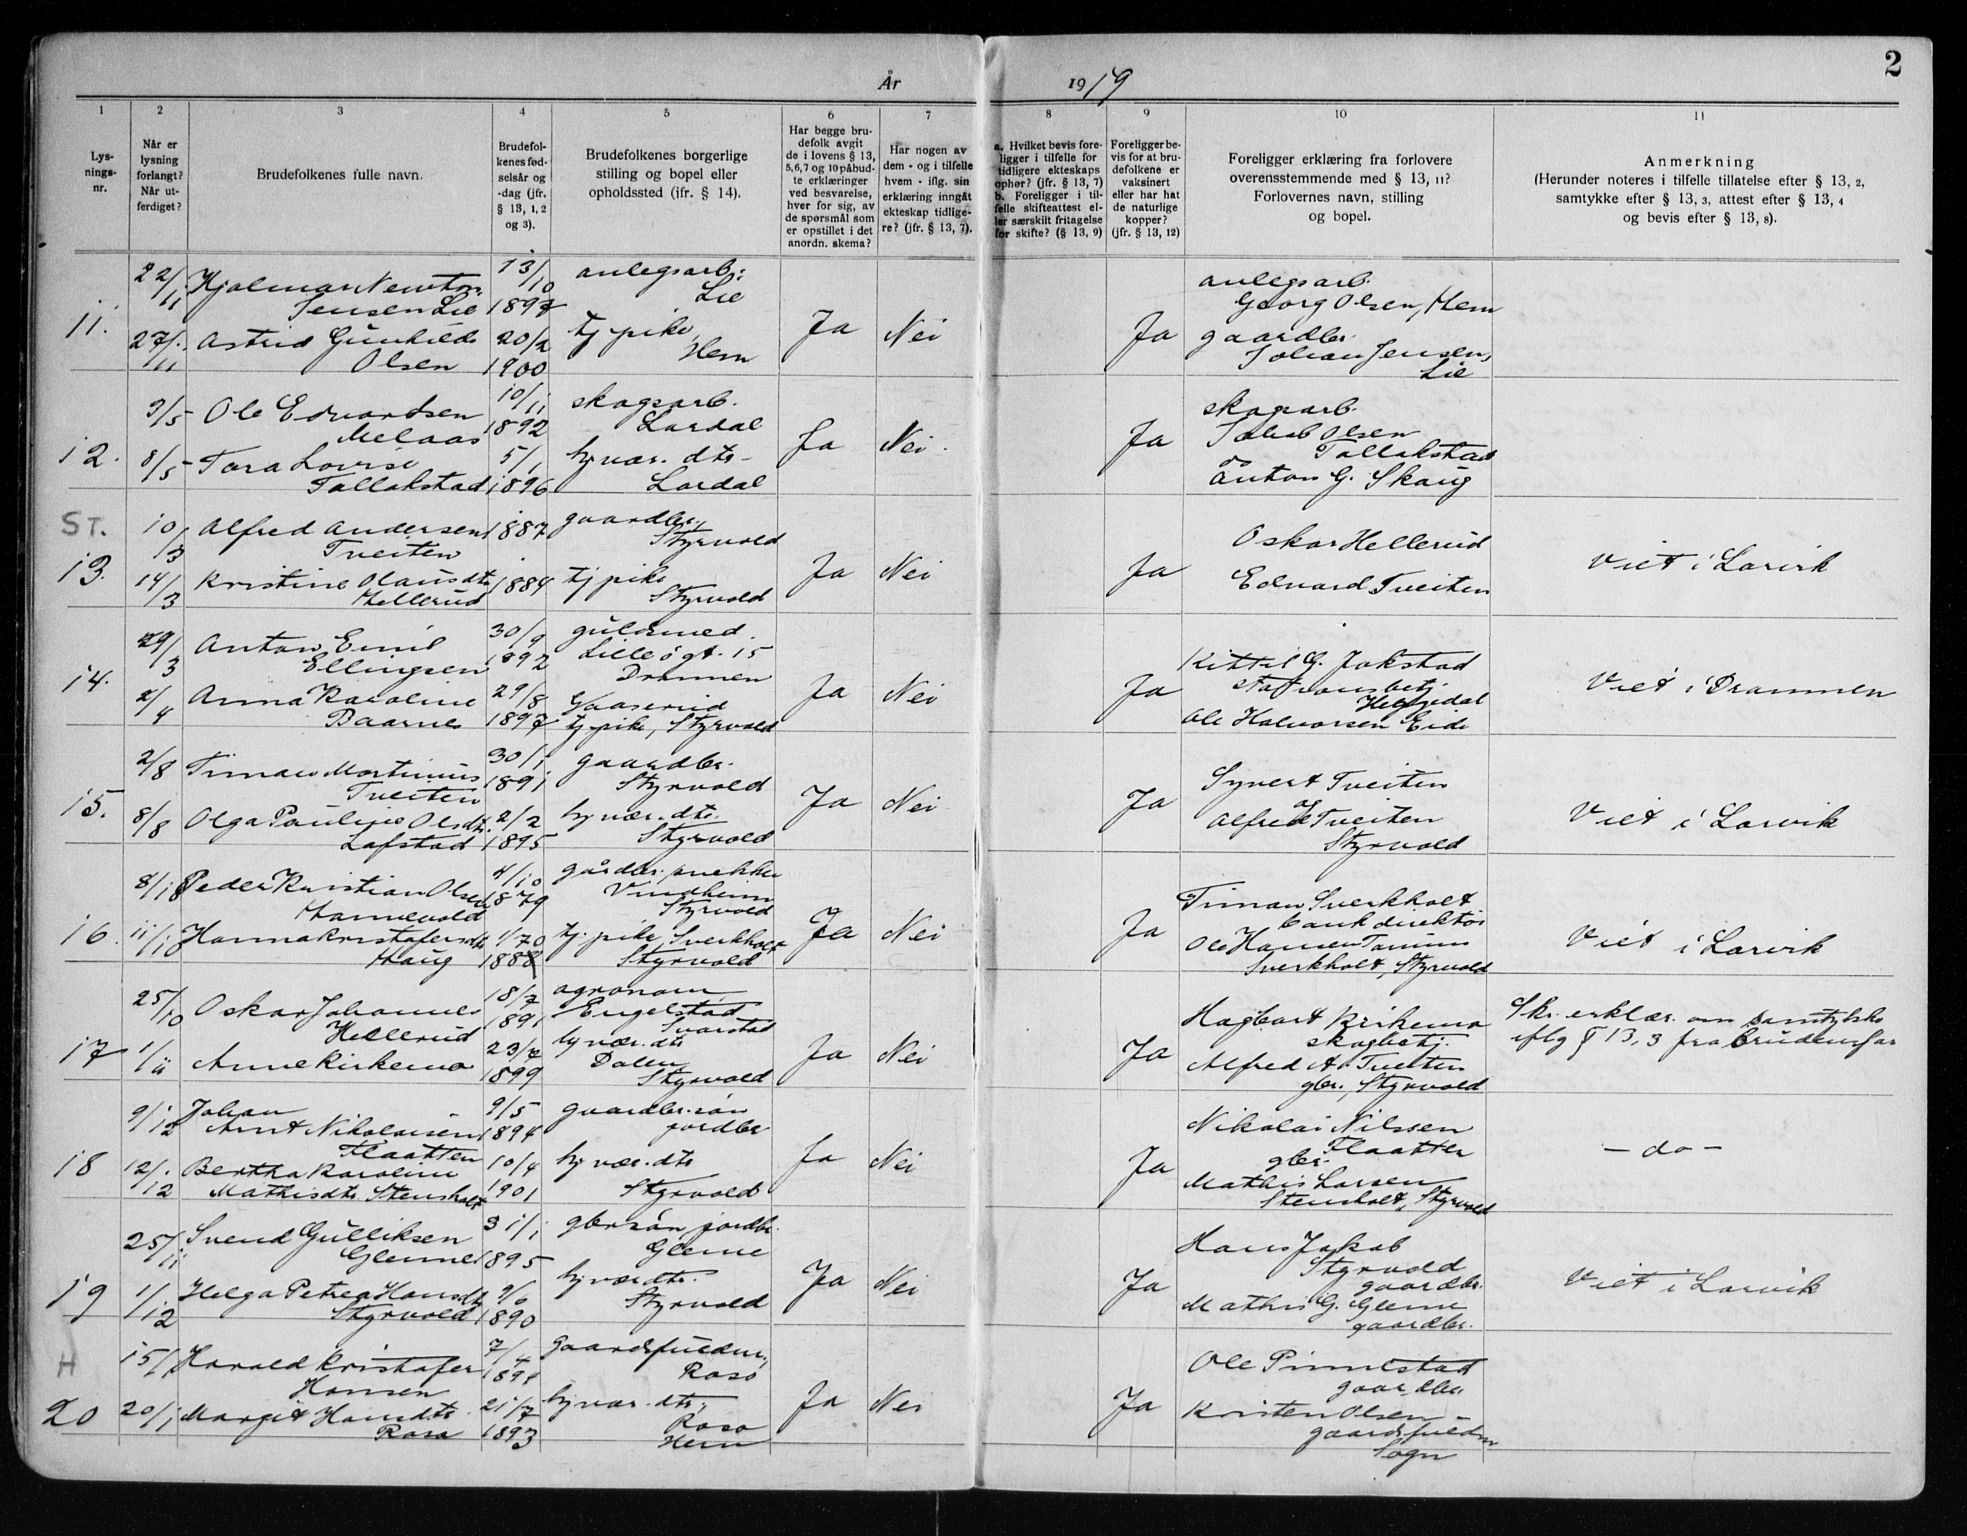 2
År 1919
1 2 3 4 5 6 7 8 9 10 11
Lys-
nings-
nr.
Når er
lysning
forlangt?
Når ut-
ferdiget?
Brudefolkenes fulle navn.
Brudefol-
kenes fød-
selsår og
-dag (jfr.
§ 13, 1, 2
og 3).
Brudefolkenes borgerlige
stilling og bopel eller
opholdssted (ifr. § 14).
Har begge bru-
defolk avgit
de i lovens § 13,
5,6,7 og 10 påbud-
te erklæringer
ved besvarelse,
hver for sig, av
de spørsmål som
er opstillet i det
anordn. skema?
Har nogen av
dem - og i tilfelle
hvem - iflg. sin
erklæring inngåt
ekteskap tidlige-
re? (jfr. § 13, 7).
a. Hvilket bevis fore-
ligger i tilfelle for
tidligere ekteskaps
ophør? (jfr. § 13, 7)
b. Foreligger i til-
felle skifteattest el-
ler særskilt fritagelse
for skifte? (§ 13, 9)
Foreligger be-
vis for at bru-
defolkene er
vaksinert
eller har hat
de naturlige
kopper?
(jfr. § 13, 12)
Foreligger erklæring fra forlovere
overensstemmende med § 13, 11?
Forlovernes navn, stilling
og bopel.
Anmerkning
(Herunder noteres i tilfelle tillatelse efter § 13, 2,
samtykke efter § 13, 3, attest efter § 13, 4
og bevis efter § 13, 8).
11.
22/11
27/11
Hjalmar Newton
Jensen Lie
Astrid Gunhilds
Olsen
13/10
20/2
1900
anlegsarb:
Lie
tj pike
Hem
Ja
Nei
Ja
anlegsarb.
Georg Olsen, Hem
gaardbr.
Johan Jensen,
Lie
12.
9/5
8/5
Ole Edvardsen
Melaas
Tora Lovise
Tallakstad
10/11
1892
5/1
1896
skogsarb.
Lardal
hj vær. dtr
Lardal
Ja
Nei.
Ja
skogsarb.
Jakob Olsen
Tallakstad
Anton G. Skaug
ST.
13.
10/3
14/3
Alfred Andersen
Tveiten
Kristine Olausdtr
Hellerud
1887
1884
gaardbr.,
Styrvold
tj pike
Styrvold
Ja
Nei
Ja
Oskar Hellerud
Edvard Tveiten
Viet i Larvik
14.
29/3
2/4
Anton Emil
Ellingsen
Anna Karoline
Baarnes
30/9
1892
29/8
1897
guldsmed.
Lilleögt. 15
Drammen
Gaaserud
tj. pike, Styrvold
Ja
Nei
Ja
Kittil G. Jakstad
stationsbetj
Ole Halvorsen Eide
Viet i Drammen
15.
2/8
8/8
Timan Martinius
Tveiten
Olga Pauline Olsdtr.
Lofstad
30/1
1891
2/2
1895
gaardbr.
Styrvold
hj vær. dtr.
Styrvold
Ja
Nei
Ja
Syvert Tveiten
Alfred Tveiten
Styrvold
Viet i Larvik
16.
8/10
11/10
Peder Kristian Olsen
Hannevold
Hanna Kristofersdtr
Haug
4/10
1879
gårdbr. snekker
Vindheim
Styrvold
tj. pike Sverkholt
Styrvold
Ja
Nei
Ja
Timan Sverkholt
bankdirektör
Ole Hansen Tanum
Sverkholt, Styrvold
Viet i Larvik
17
25/10
1/11
Oskar Johannes
Hellerud
Anne Kirkemo
18/7
1891
23/7
1899
agronom
Engelstad
Svarstad
hj vær. dtr
Dalen
Styrvold
Ja
Nei
Ja
Hagbart Kirkemo
skogbetj.
Alfred A. Tveiten
gbr., Styrvold
Skr. erklær. om samtykke
iflg § 13, 3 fra brudens far
18
9/12
12/12
Johan
Arnt Nikolaisen
Flaatten
Bertha Karoline
Mathisdtr Stensholt
9/5
1894
10/4
1901
gaardbr. sön
jordbr
hj vær. dtr
Styrvold
Ja
Nei
Ja
Nikolai Nilssen
Flaatten
gbr.
Mathis Larsen
Stensholt, Styrvold
— do —
19
25/11
1/12
Svend Gulliksen
Glenne
Helga Petrea Hansdtr
Styrvold
31/1
1895
9/6
1890
gbr sön jordbr.
Glenne
hj vær dtr.
Styrvold
Ja
Nei
Ja
Hans Jakob
Styrvold
gaardbr.
Mathis G. Glenne
gaardbr.
Viet i Larvik
H
20
15/1
20/1
Harald Kristofer
Hansen
Margit Hansdtr.
Rasa
7/4
21/7
1893
Raso
hj vær. dtr.
Raso
Hem
Ja
Nei
Ja
Ole Pinnestad
gaardbr.
Kristen Olsen
Sogn